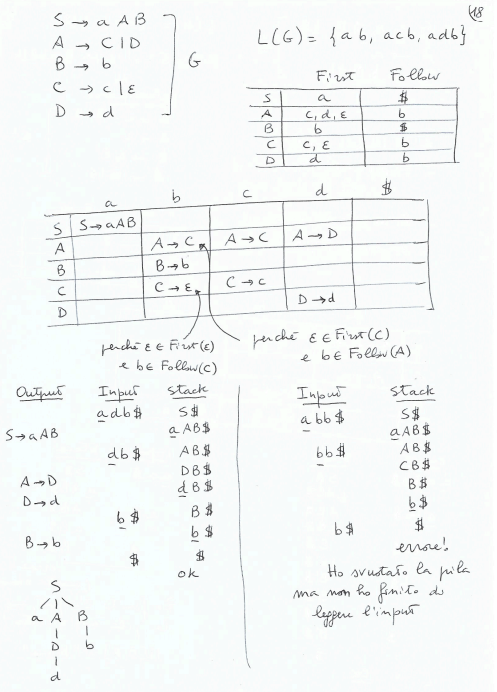 48
S → a A B
A → C | D
B → b
C → c | ε
D → d
G
L(G) = {ab, acb, adb}
First Follow
S a $
A c, d, ε b
B b $
C c, ε b
D d b
a b c d $
S S → aAB
A A → C A → C A → D
B B → b
C C → ε C → c
D D → d
perché ε ∈ First(ε)
e b ∈ Follow(C)
perché ε ∈ First(C)
e b ∈ Follow(A)
Output Input Stack
adb$ S$
S → aAB aAB$
db$ AB$
A → D DB$
D → d dB$
b$ B$
B → b b$
$ $
ok
S
a A B
D b
d
Input Stack
abb$ S$
aAB$
bb$ AB$
CB$
B$
b$
b$ $
errore!
Ho svuotato la pila
ma non ho finito di
leggere l'input